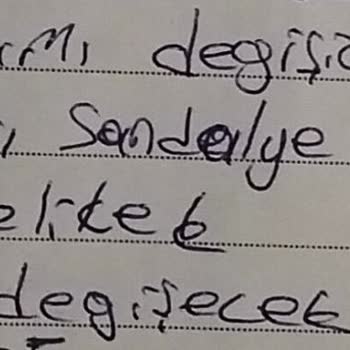 ımı değişic
, Sandalye
elitek
değişecek